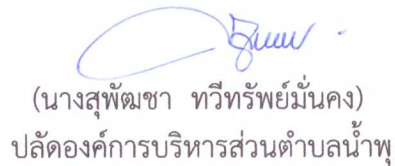 (นางสุพัฒชา ทวีทรัพย์มั่นคง)
ปลัดองค์การบริหารส่วนตำบลน้ำพุ